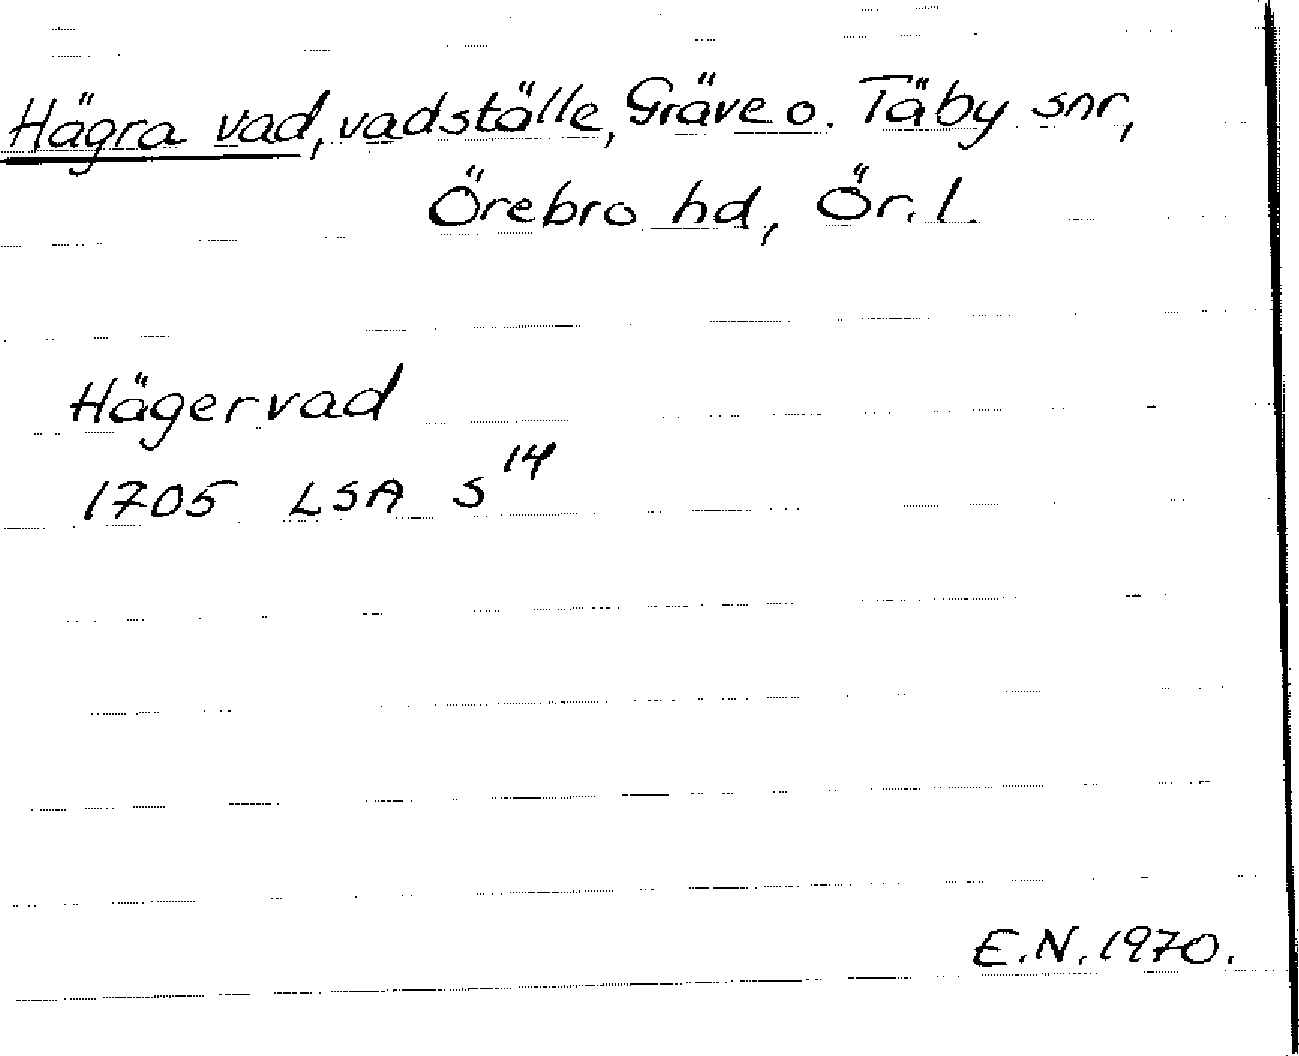 Hägra vad, vadställe, Gräve o. Täby snr,
Örebro hd, Ör. l.
Hägervad
1705 LSA S¹⁴
E.N. 1970.